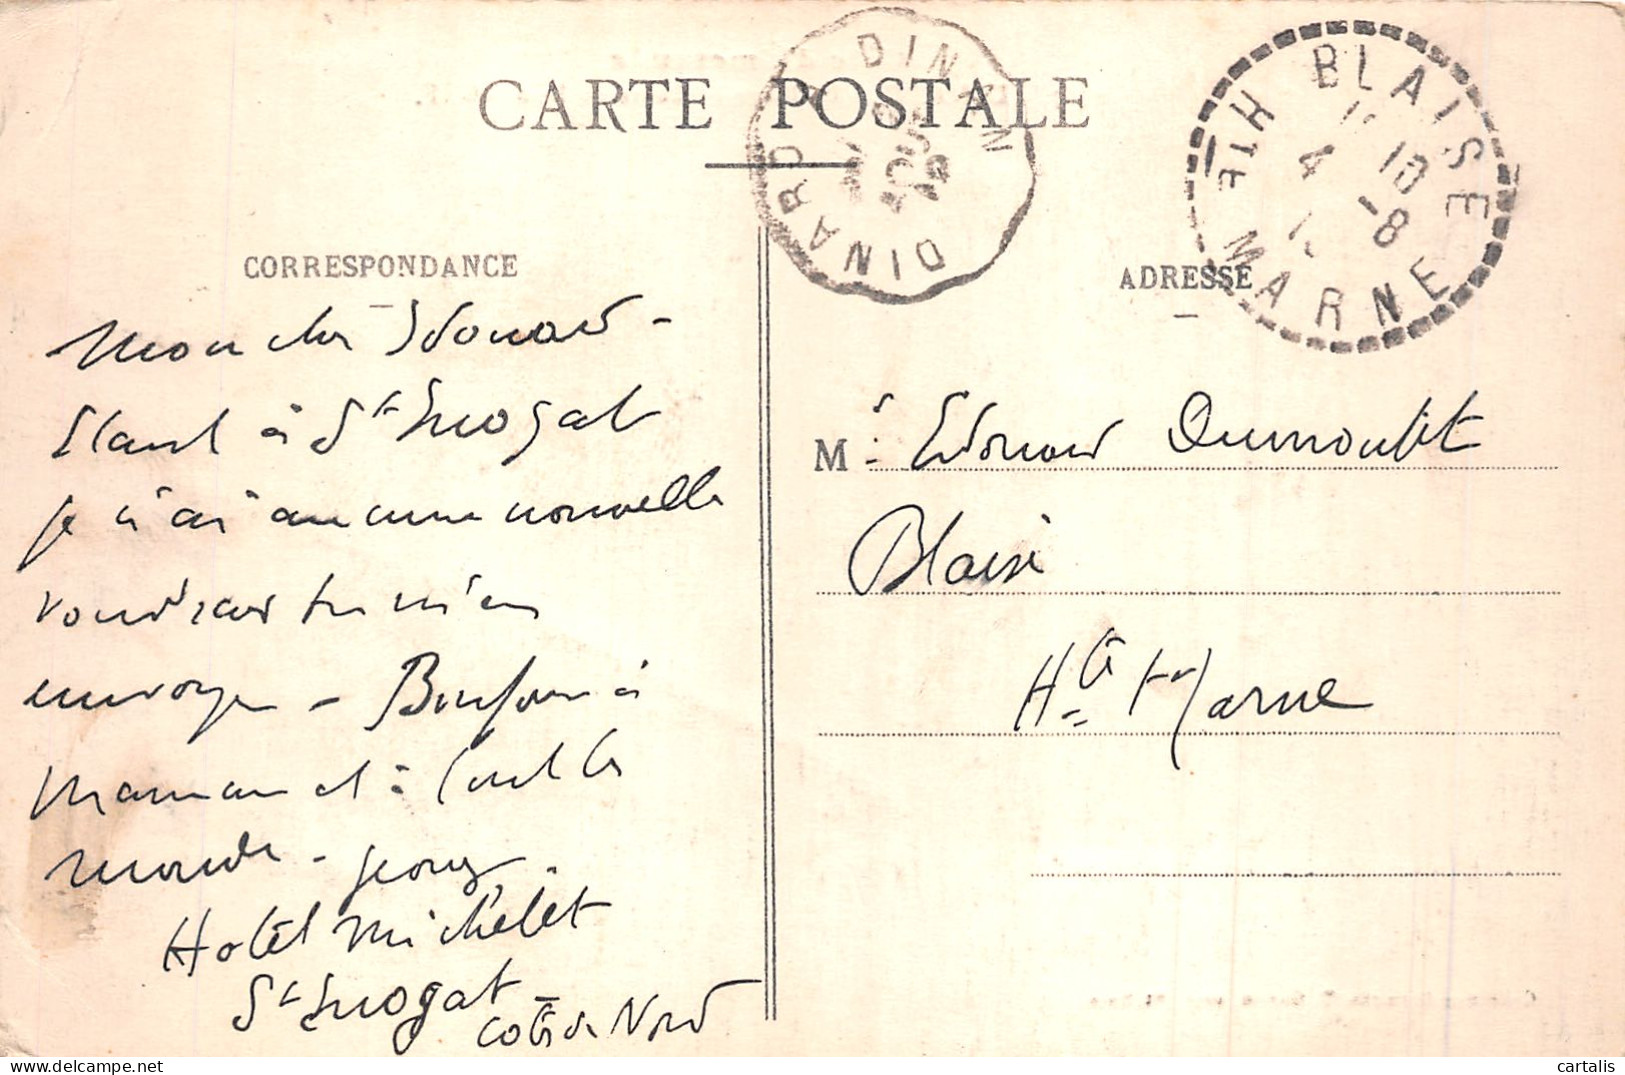 CARTE POSTALE
DINARD A DINAN
DINARD
AOUT
BLAISE
HTE MARNE
10
4 -8
CORRESPONDANCE
ADRESSE
Mon cher Edouard -
Etant à St Enogat
je n'ai aucune nouvelle
voudrais tu m'en
envoyer - Bonjour à
Maman et à tout le
monde - Georges.
Hotel Michelet
St Enogat -
Cotes du Nord
Mr Edouard
Blaise
Hte Marne
cartalis